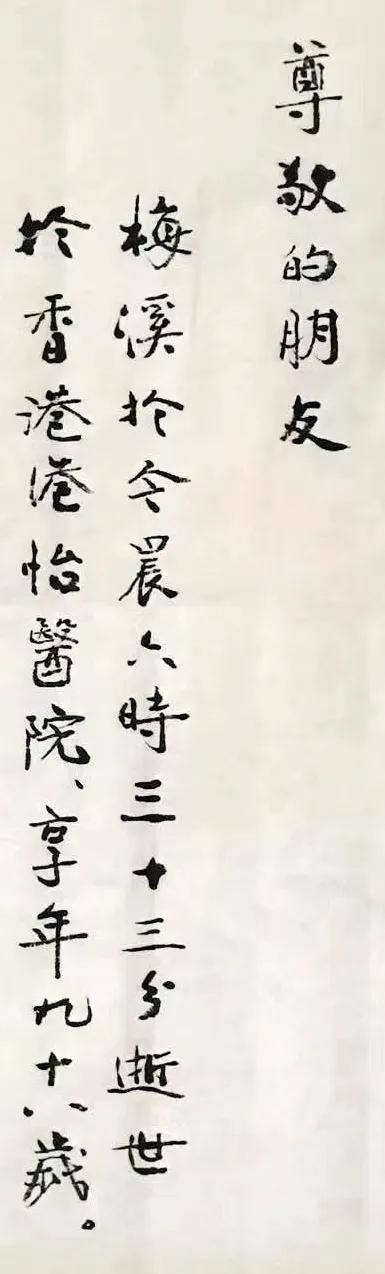 尊敬的朋友
梅溪於今晨六時三十三分逝世
於香港港怡醫院、享年九十八歲。